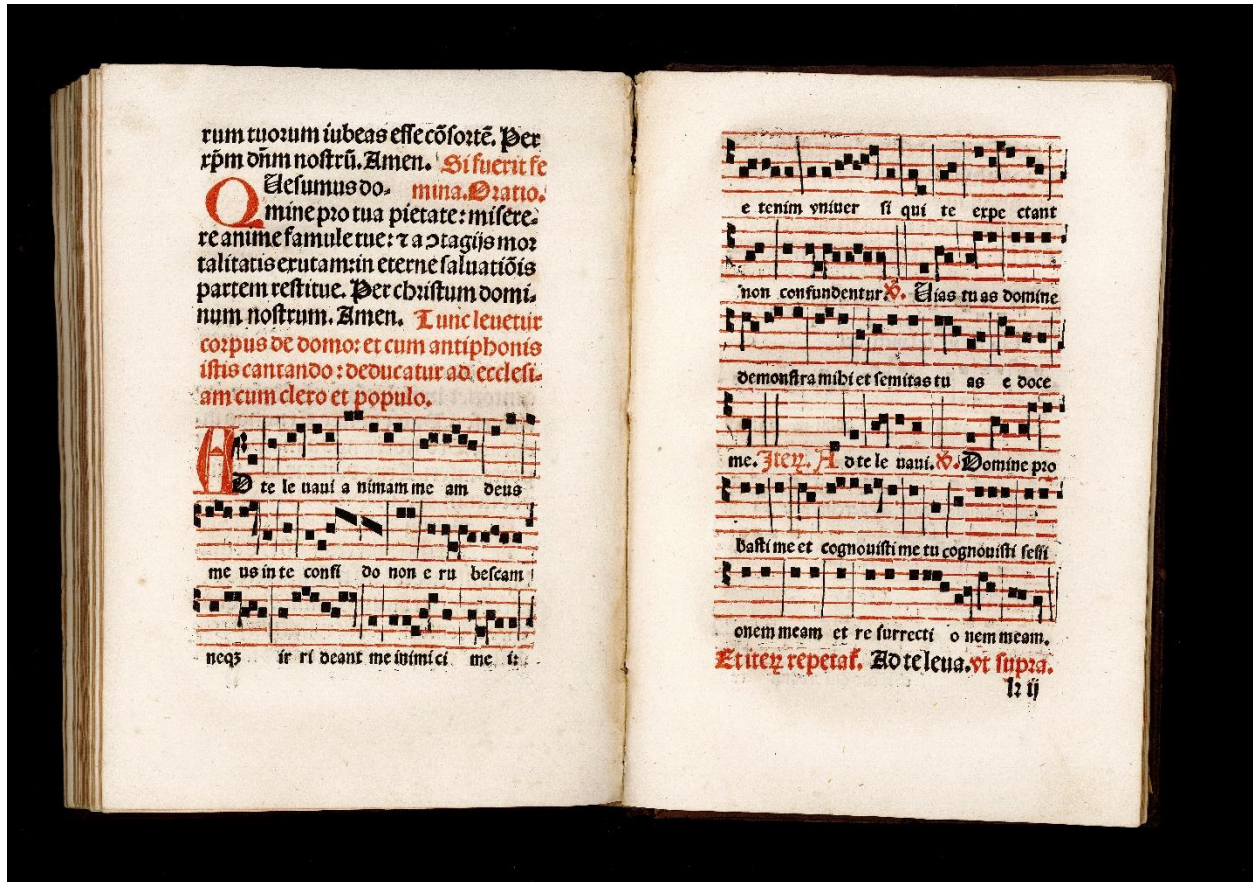 rum tuorum iubeas esse cōsortē. Per
xp̄m dn̄m nostrū. Amen. Si fuerit fe
QUesumus do- mina. Oratio.
mine pro tua pietate: misere-
re anime famule tue: ⁊ a ↄtagijs mor
talitatis exutam: in eterne saluatiōis
partem restitue. Per christum domi-
num nostrum. Amen. Tunc leuetur
corpus de domo: et cum antiphonis
istis cantando: deducatur ad ecclesi-
am cum clero et populo.
AD te le uaui a nimam me am deus
me us in te confi do non e ru bescam
neqꝫ ir ri deant me inimi ci me i:
e tenim vniuer si qui te expe ctant
non confundentur. ℣. Uias tu as domine
demonstra mihi et semitas tu as e doce
me. Iteꝝ. A d te le uaui. ℣. Domine pro
basti me et cognouisti me tu cognouisti sessi
onem meam et re surrecti o nem meam.
Et iteꝝ repetat̄. Ad te leua. vt supra.
h ij